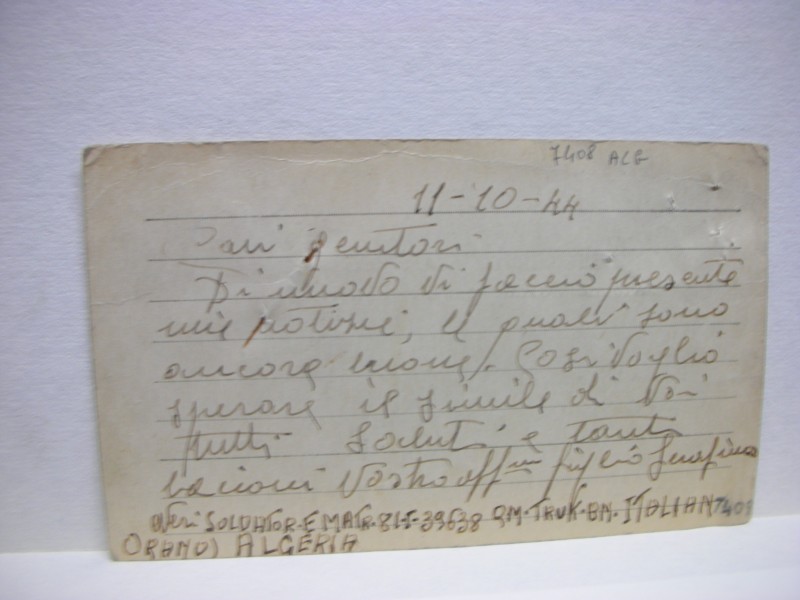 7408 ALG
11-10-44
Cari genitori
Di nuovo Vi faccio presente
mie notizie, le quali sono
ancora buone. Così voglio
sperare il simile di Voi
tutti Saluti e tanti
bacioni Vostro aff mo figlio Serafino
Neri SOLDATO R.E MATR. 81-I-39638 QM. TRUK. BN. ITALIAN 7408
ORANO) ALGERIA